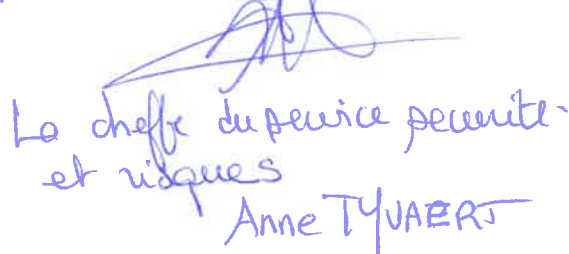 La cheffe du service securité
et risques
Anne TYVAERT